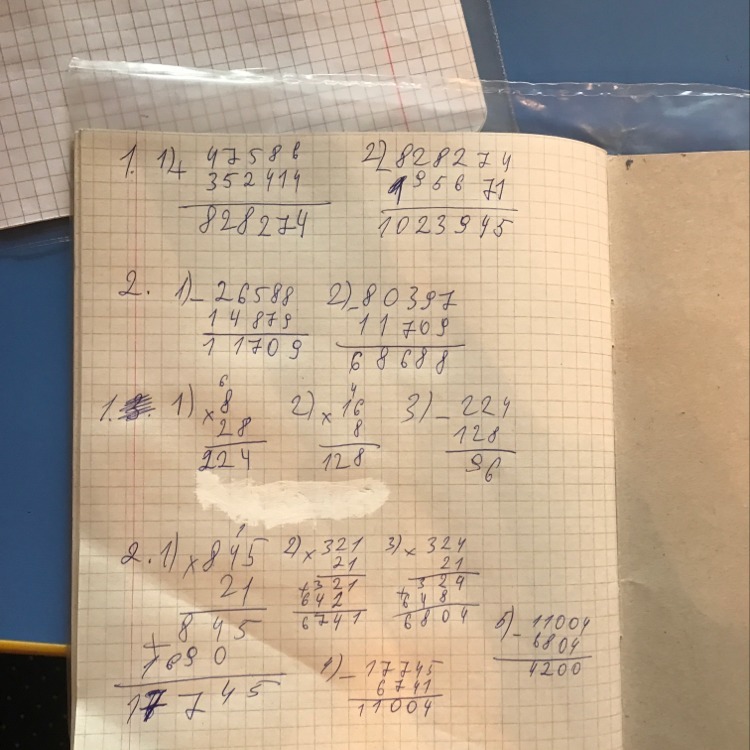 1. 1) + 47586
352414
828274
2) - 828274
195671
1023945
2. 1) - 26588
14879
11709
2) - 80397
11709
68688
1. 1) 6
× 8
28
224
2) 4
× 16
8
128
3) - 224
128
96
2. 1) 1
× 845
21
+ 845
1690
17745
2) × 321
21
+ 321
642
6741
3) × 324
21
+ 324
648
6804
1) - 17745
6741
11004
5) - 11004
6804
4200